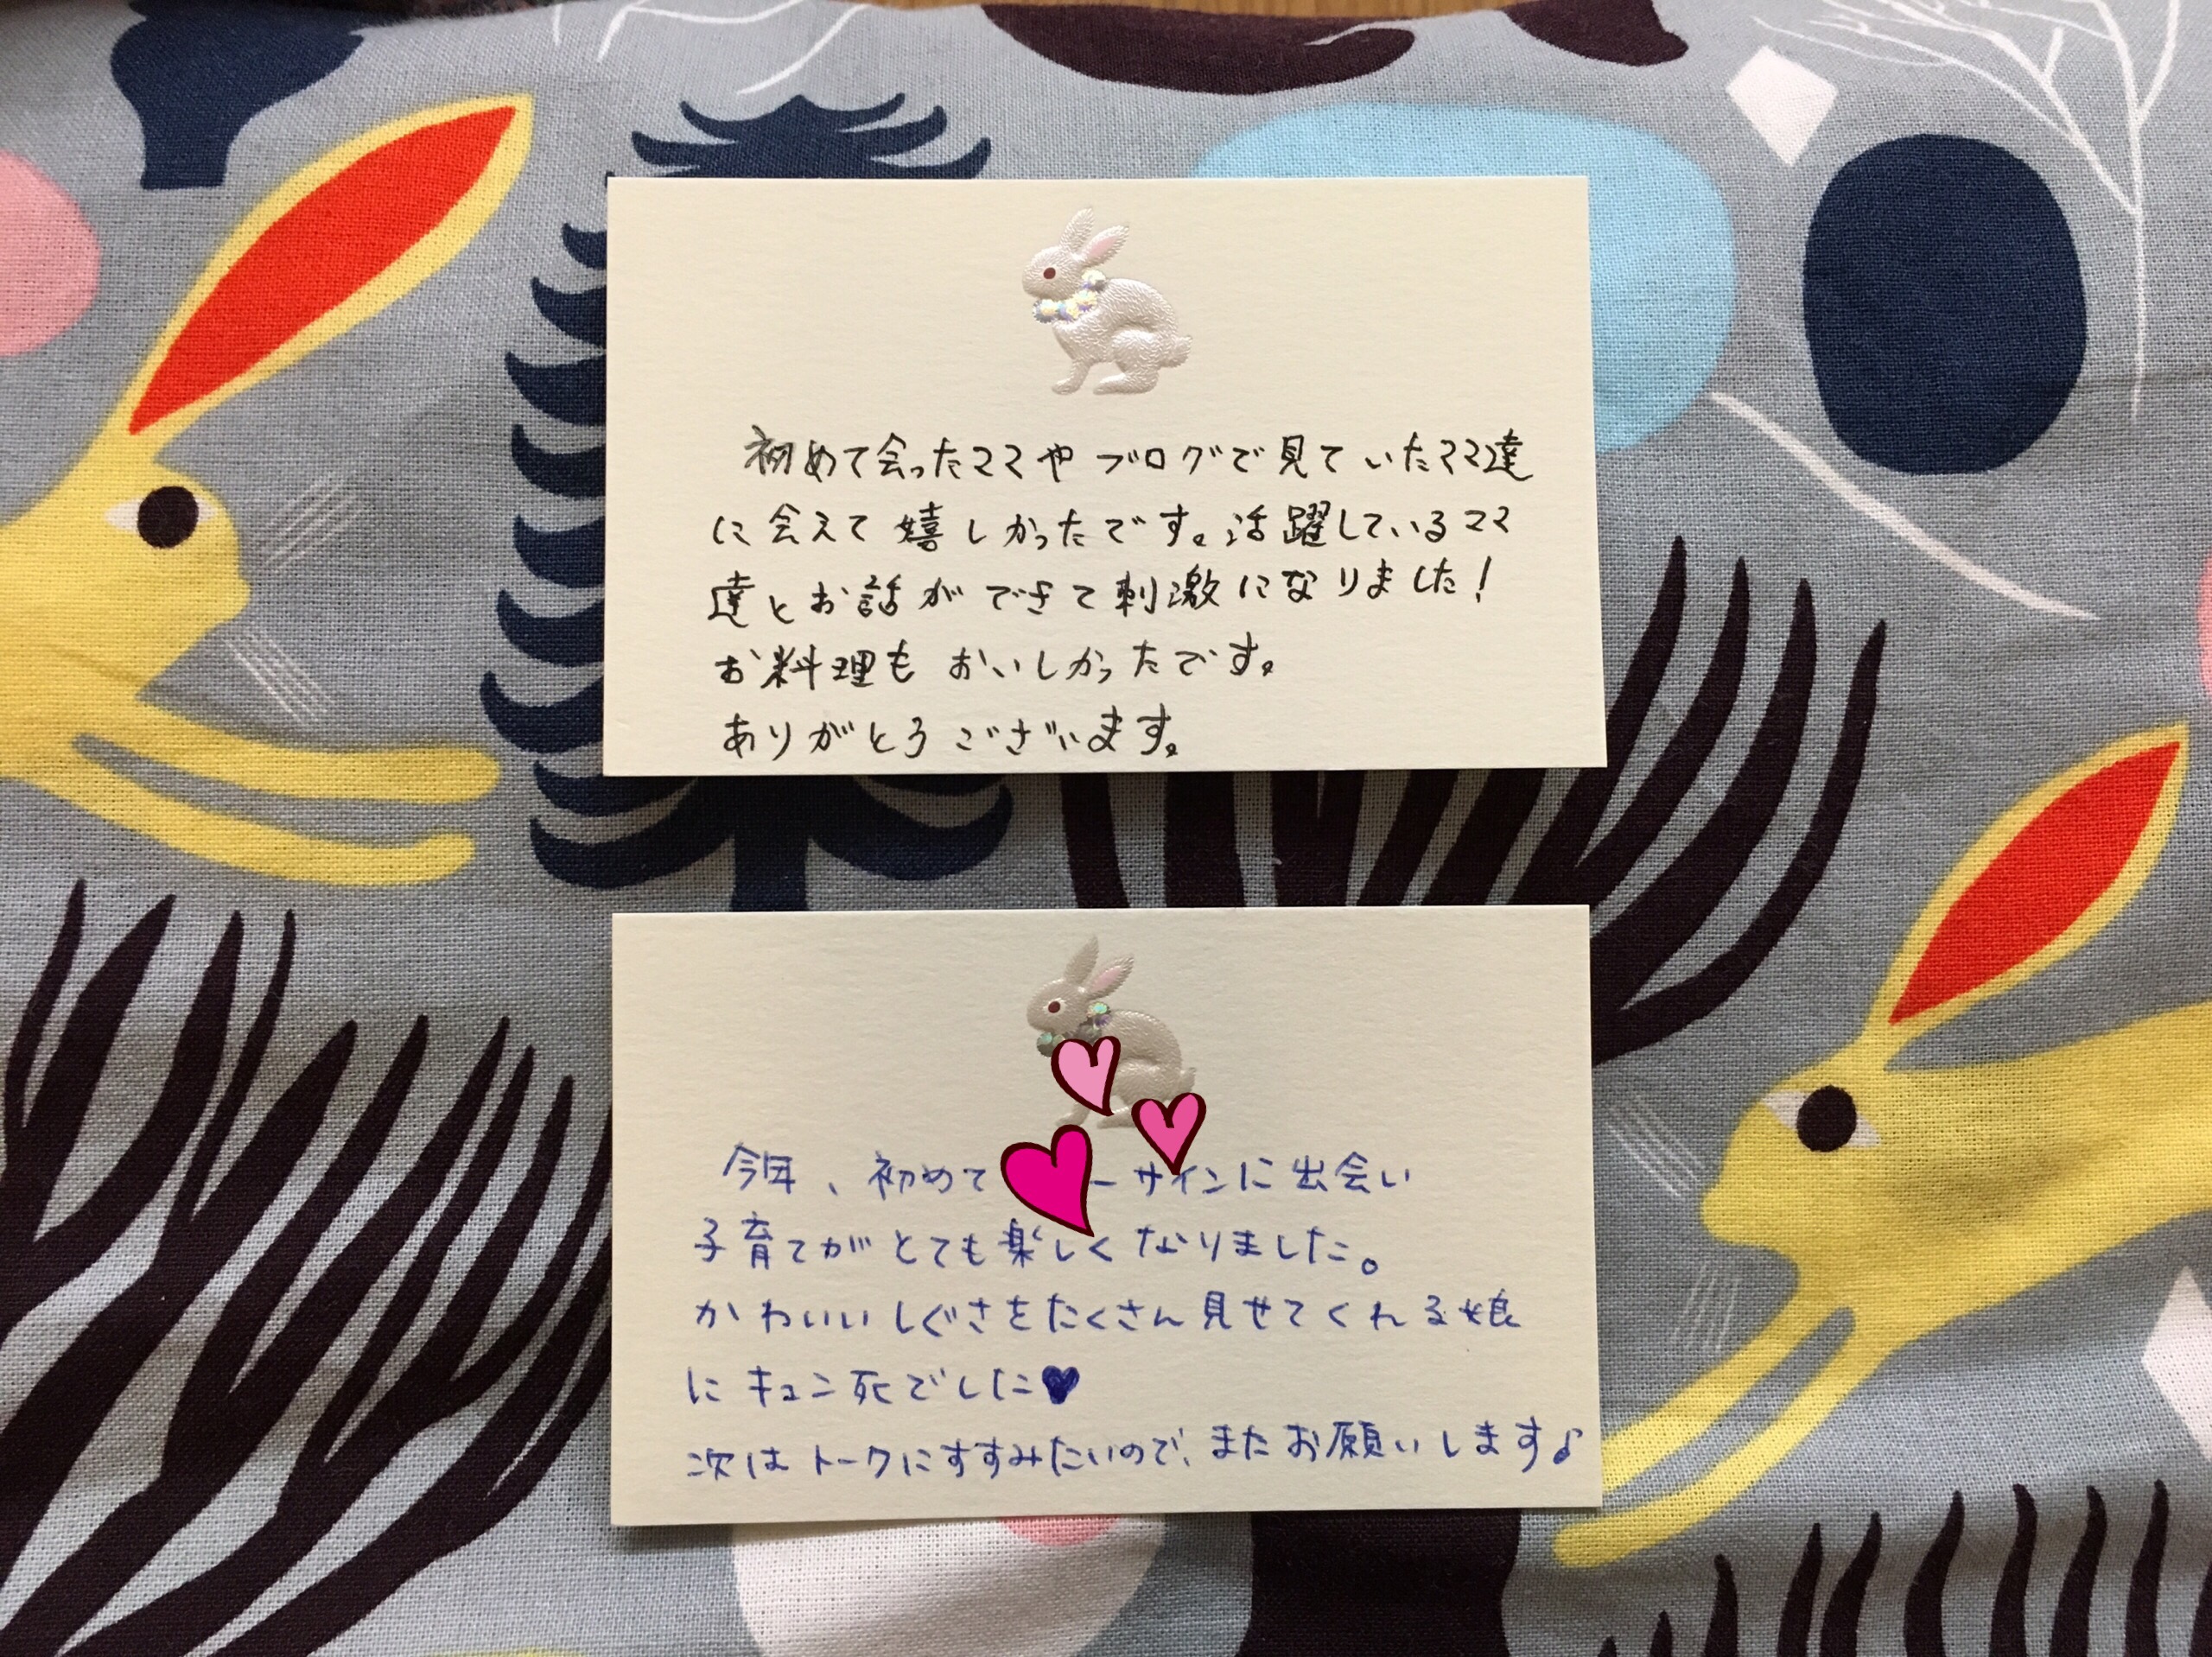 初めて会ったママやブログで見ていたママ達
に会えて嬉しかったです。活躍しているママ
達とお話ができて刺激になりました!
お料理もおいしかったです。
ありがとうございます。
今年、初めて ーサインに出会い
子育てがとても楽しくなりました。
かわいいしぐさをたくさん見せてくれる娘
にキュン死でした♥
次はトークにすすみたいので、またお願いします♪